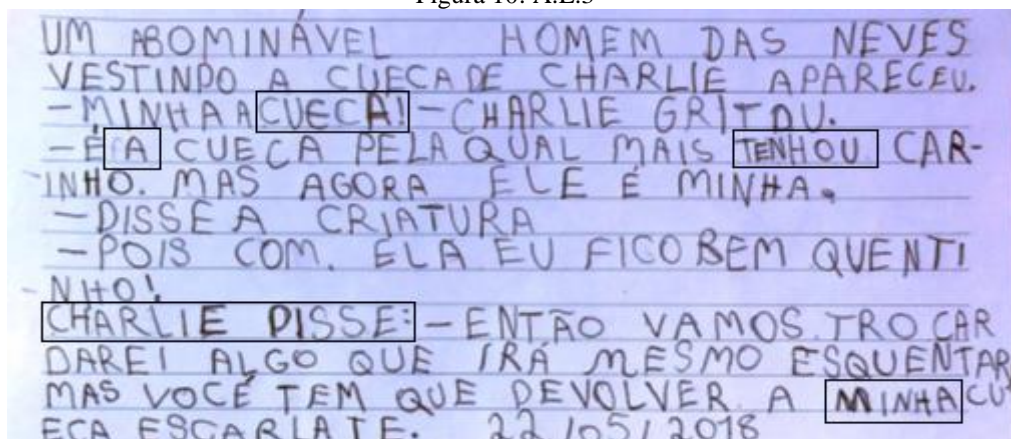 Figura 10: A.L.3
UM ABOMINÁVEL HOMEM DAS NEVES
VESTINDO A CUECA DE CHARLIE APARECEU.
-MINHA A CUECA! -CHARLIE GRITOU.
-É A CUECA PELA QUAL MAIS TENHOU CAR-
-INHO. MAS AGORA ELE É MINHA.
-DISSE A CRIATURA
-POIS COM. ELA EU FICO BEM QUENTI
-NHO!
CHARLIE DISSE: -ENTÃO VAMOS TROCAR
DAREI ALGO QUE IRÁ MESMO ESQUENTAR
MAS VOCÊ TEM QUE DEVOLVER A MINHA CU
ECA ESCARLATE. 22/05/2018